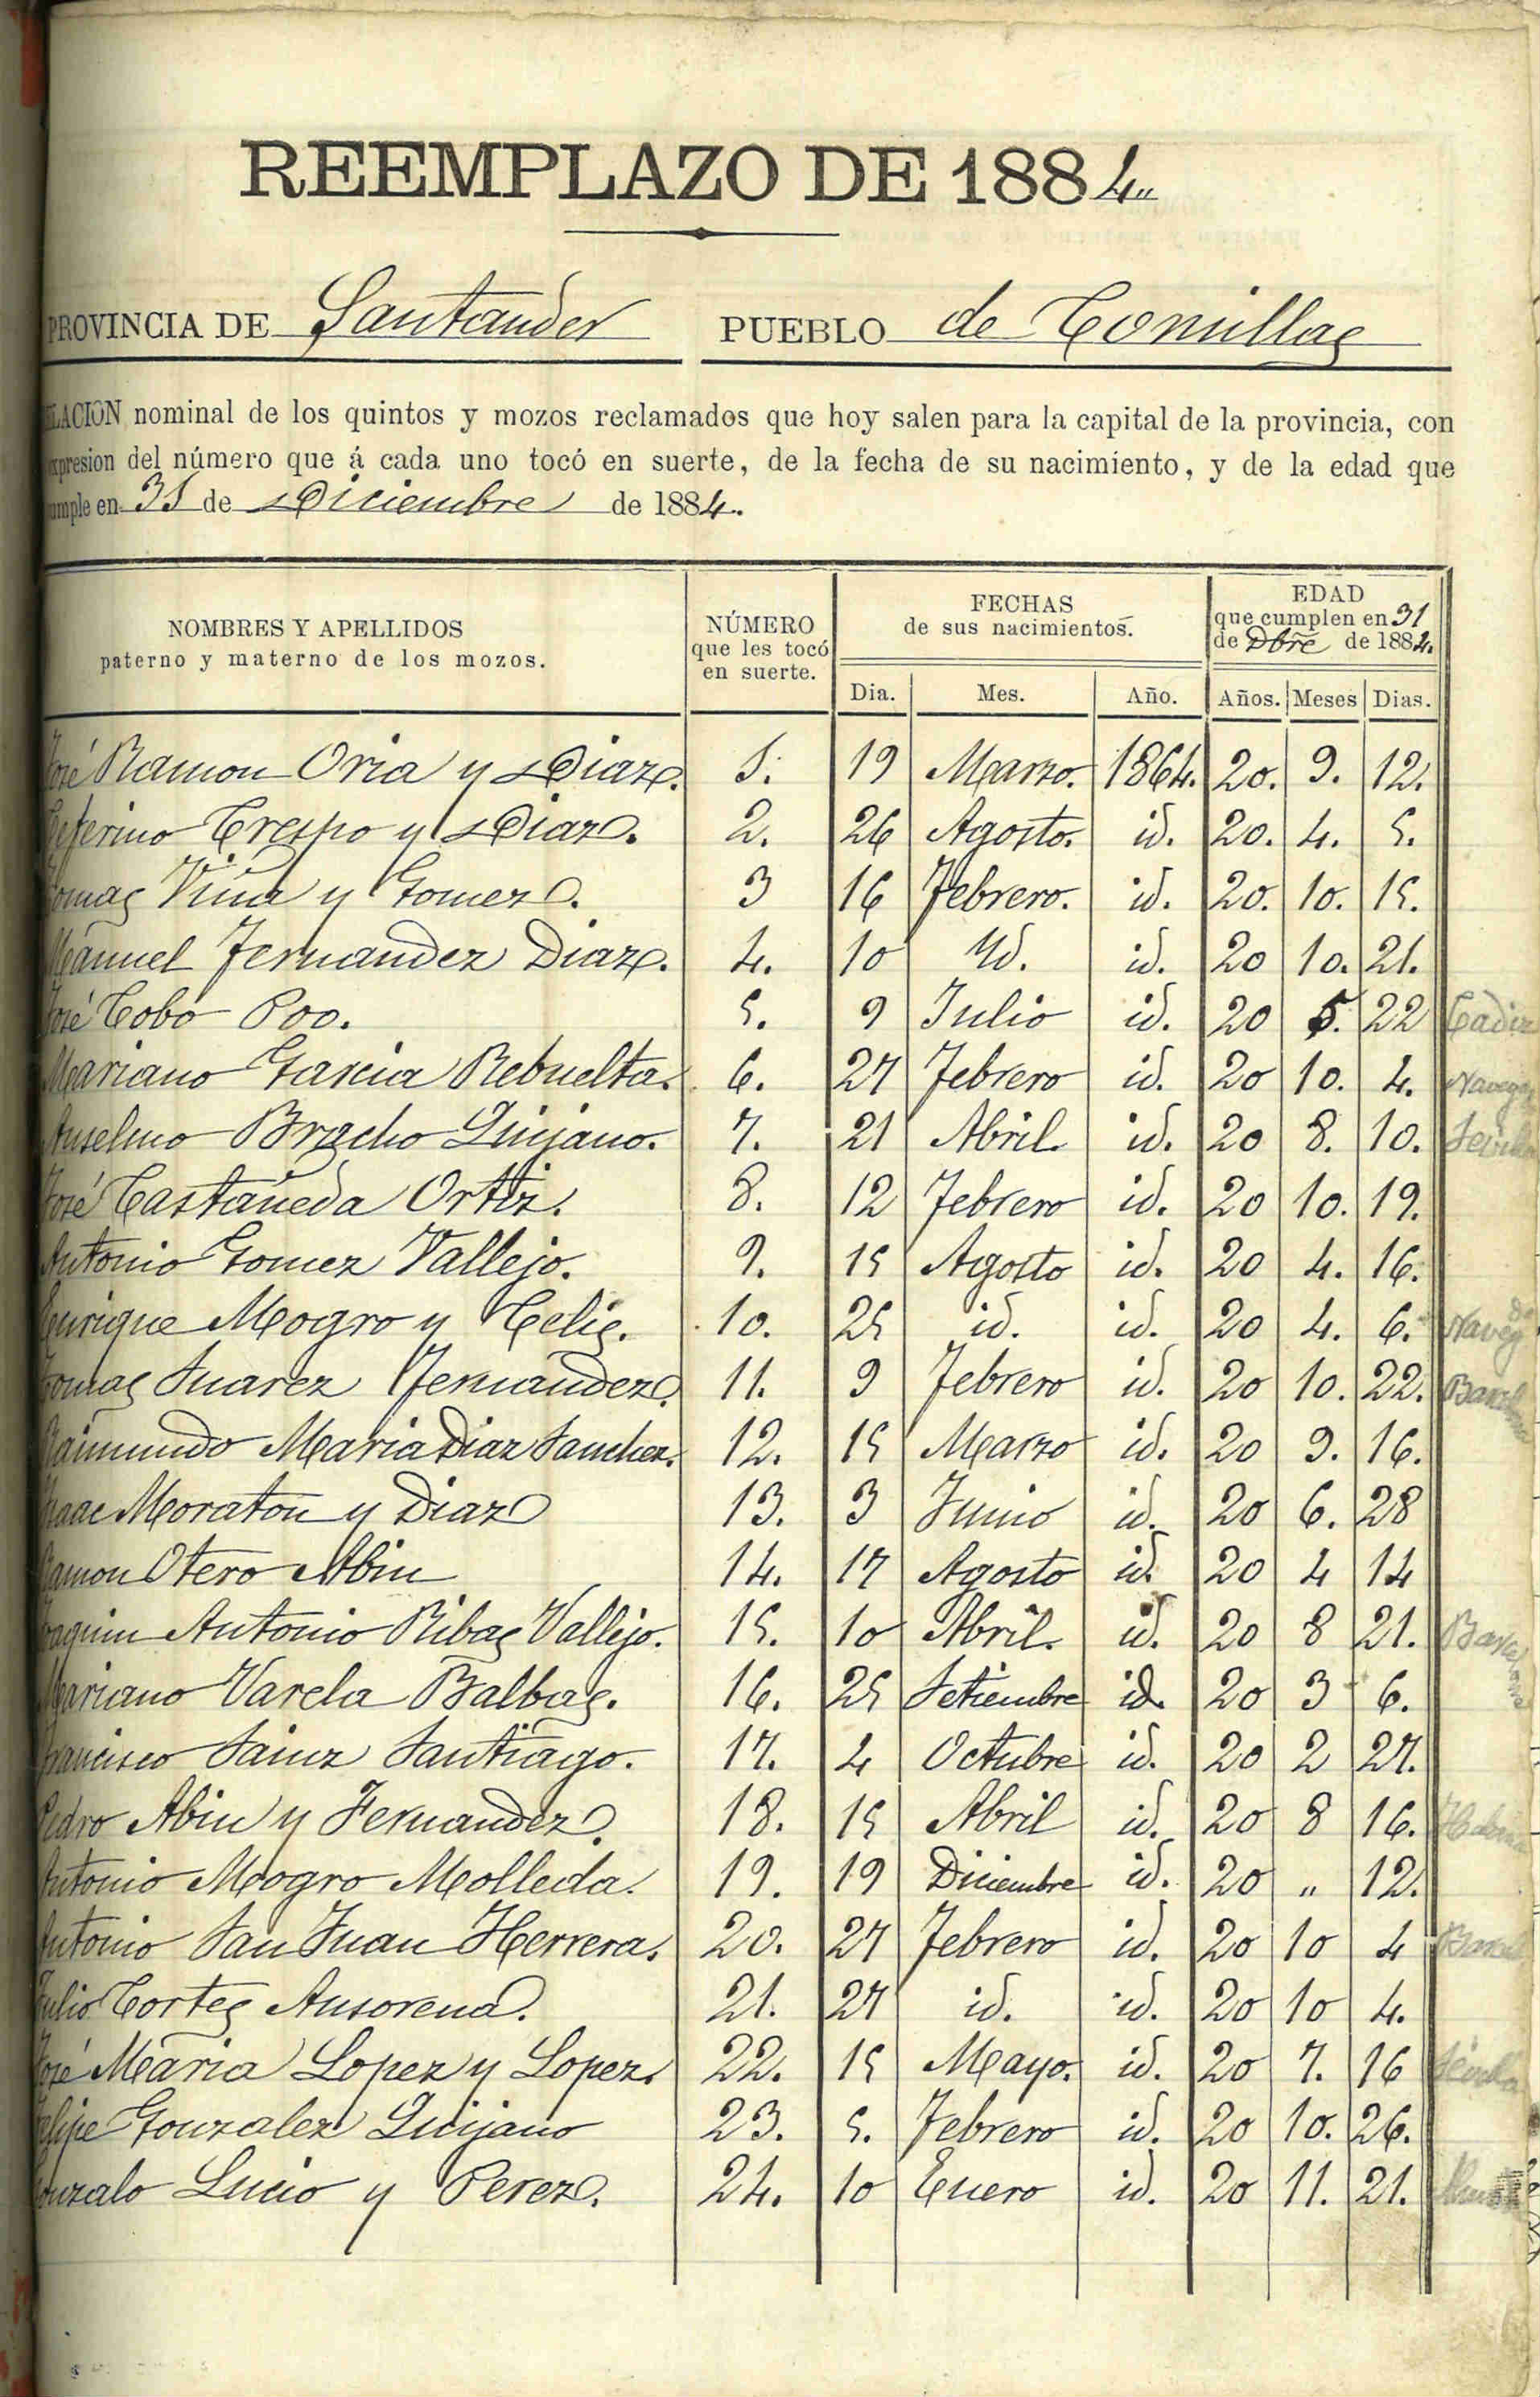 REEMPLAZO DE 1884
PROVINCIA DE Santander PUEBLO de Comillas
LACION nominal de los quintos y mozos reclamados que hoy salen para la capital de la provincia, con
xpresion del número que á cada uno tocó en suerte, de la fecha de su nacimiento, y de la edad que
umple en 31 de Diciembre de 1884.
NOMBRES Y APELLIDOS
paterno y materno de los mozos.
NÚMERO
que les tocó
en suerte.
FECHAS
de sus nacimientos.
EDAD
que cumplen en 31
de Dbre de 1884.
Dia. Mes. Año. Años. Meses Dias.
José Ramon Oria y Diaz. 1. 19 Marzo. 1864. 20. 9. 12.
Ceferino Crespo y Diaz. 2. 26 Agosto. id. 20. 4. 5.
Tomas Viña y Gomez. 3 16 Febrero. id. 20. 10. 15.
Manuel Fernandez Diaz. 4. 10 Id. id. 20 10. 21.
José Cobo Poo. 5. 9 Julio id. 20 5. 22 Cadiz
Mariano Garcia Rebuelta. 6. 27 Febrero id. 20 10. 4.
Anselmo Bracho Quijano. 7. 21 Abril. id. 20 8. 10. Sevilla
José Castañeda Ortiz. 8. 12 Febrero id. 20 10. 19.
Antonio Gomez Vallejo. 9. 15 Agosto id. 20 4. 16.
Enrique Mogro y Celis. 10. 25 id. id. 20 4. 6.
Tomas Suarez Fernandez. 11. 9 Febrero id. 20 10. 22.
Raimundo Maria Diaz Sanchez. 12. 15 Marzo id. 20 9. 16.
Isaac Moraton y Diaz 13. 3 Junio id. 20 6. 28
Ramon Otero Abin 14. 17 Agosto id. 20 4 14
Joaquin Antonio Ribas Vallejo. 15. 10 Abril. id. 20 8 21.
Mariano Varela Balbas. 16. 25 Setiembre id. 20 3 6.
Francisco Sainz Santiago. 17. 4 Octubre id. 20 2 27.
Pedro Abin y Fernandez. 18. 15 Abril id. 20 8 16.
Antonio Mogro Molleda. 19. 19 Diciembre id. 20 " 12.
Antonio San Juan Herrera. 20. 27 Febrero id. 20 10 4
Julio Cortes Ansorena. 21. 27 id. id. 20 10 4.
José Maria Lopez y Lopez. 22. 15 Mayo. id. 20 7. 16 Sevilla
Felipe Gonzalez Quijano 23. 5. Febrero id. 20 10. 26.
Gonzalo Lucio y Perez. 24. 10 Enero id. 20 11. 21.